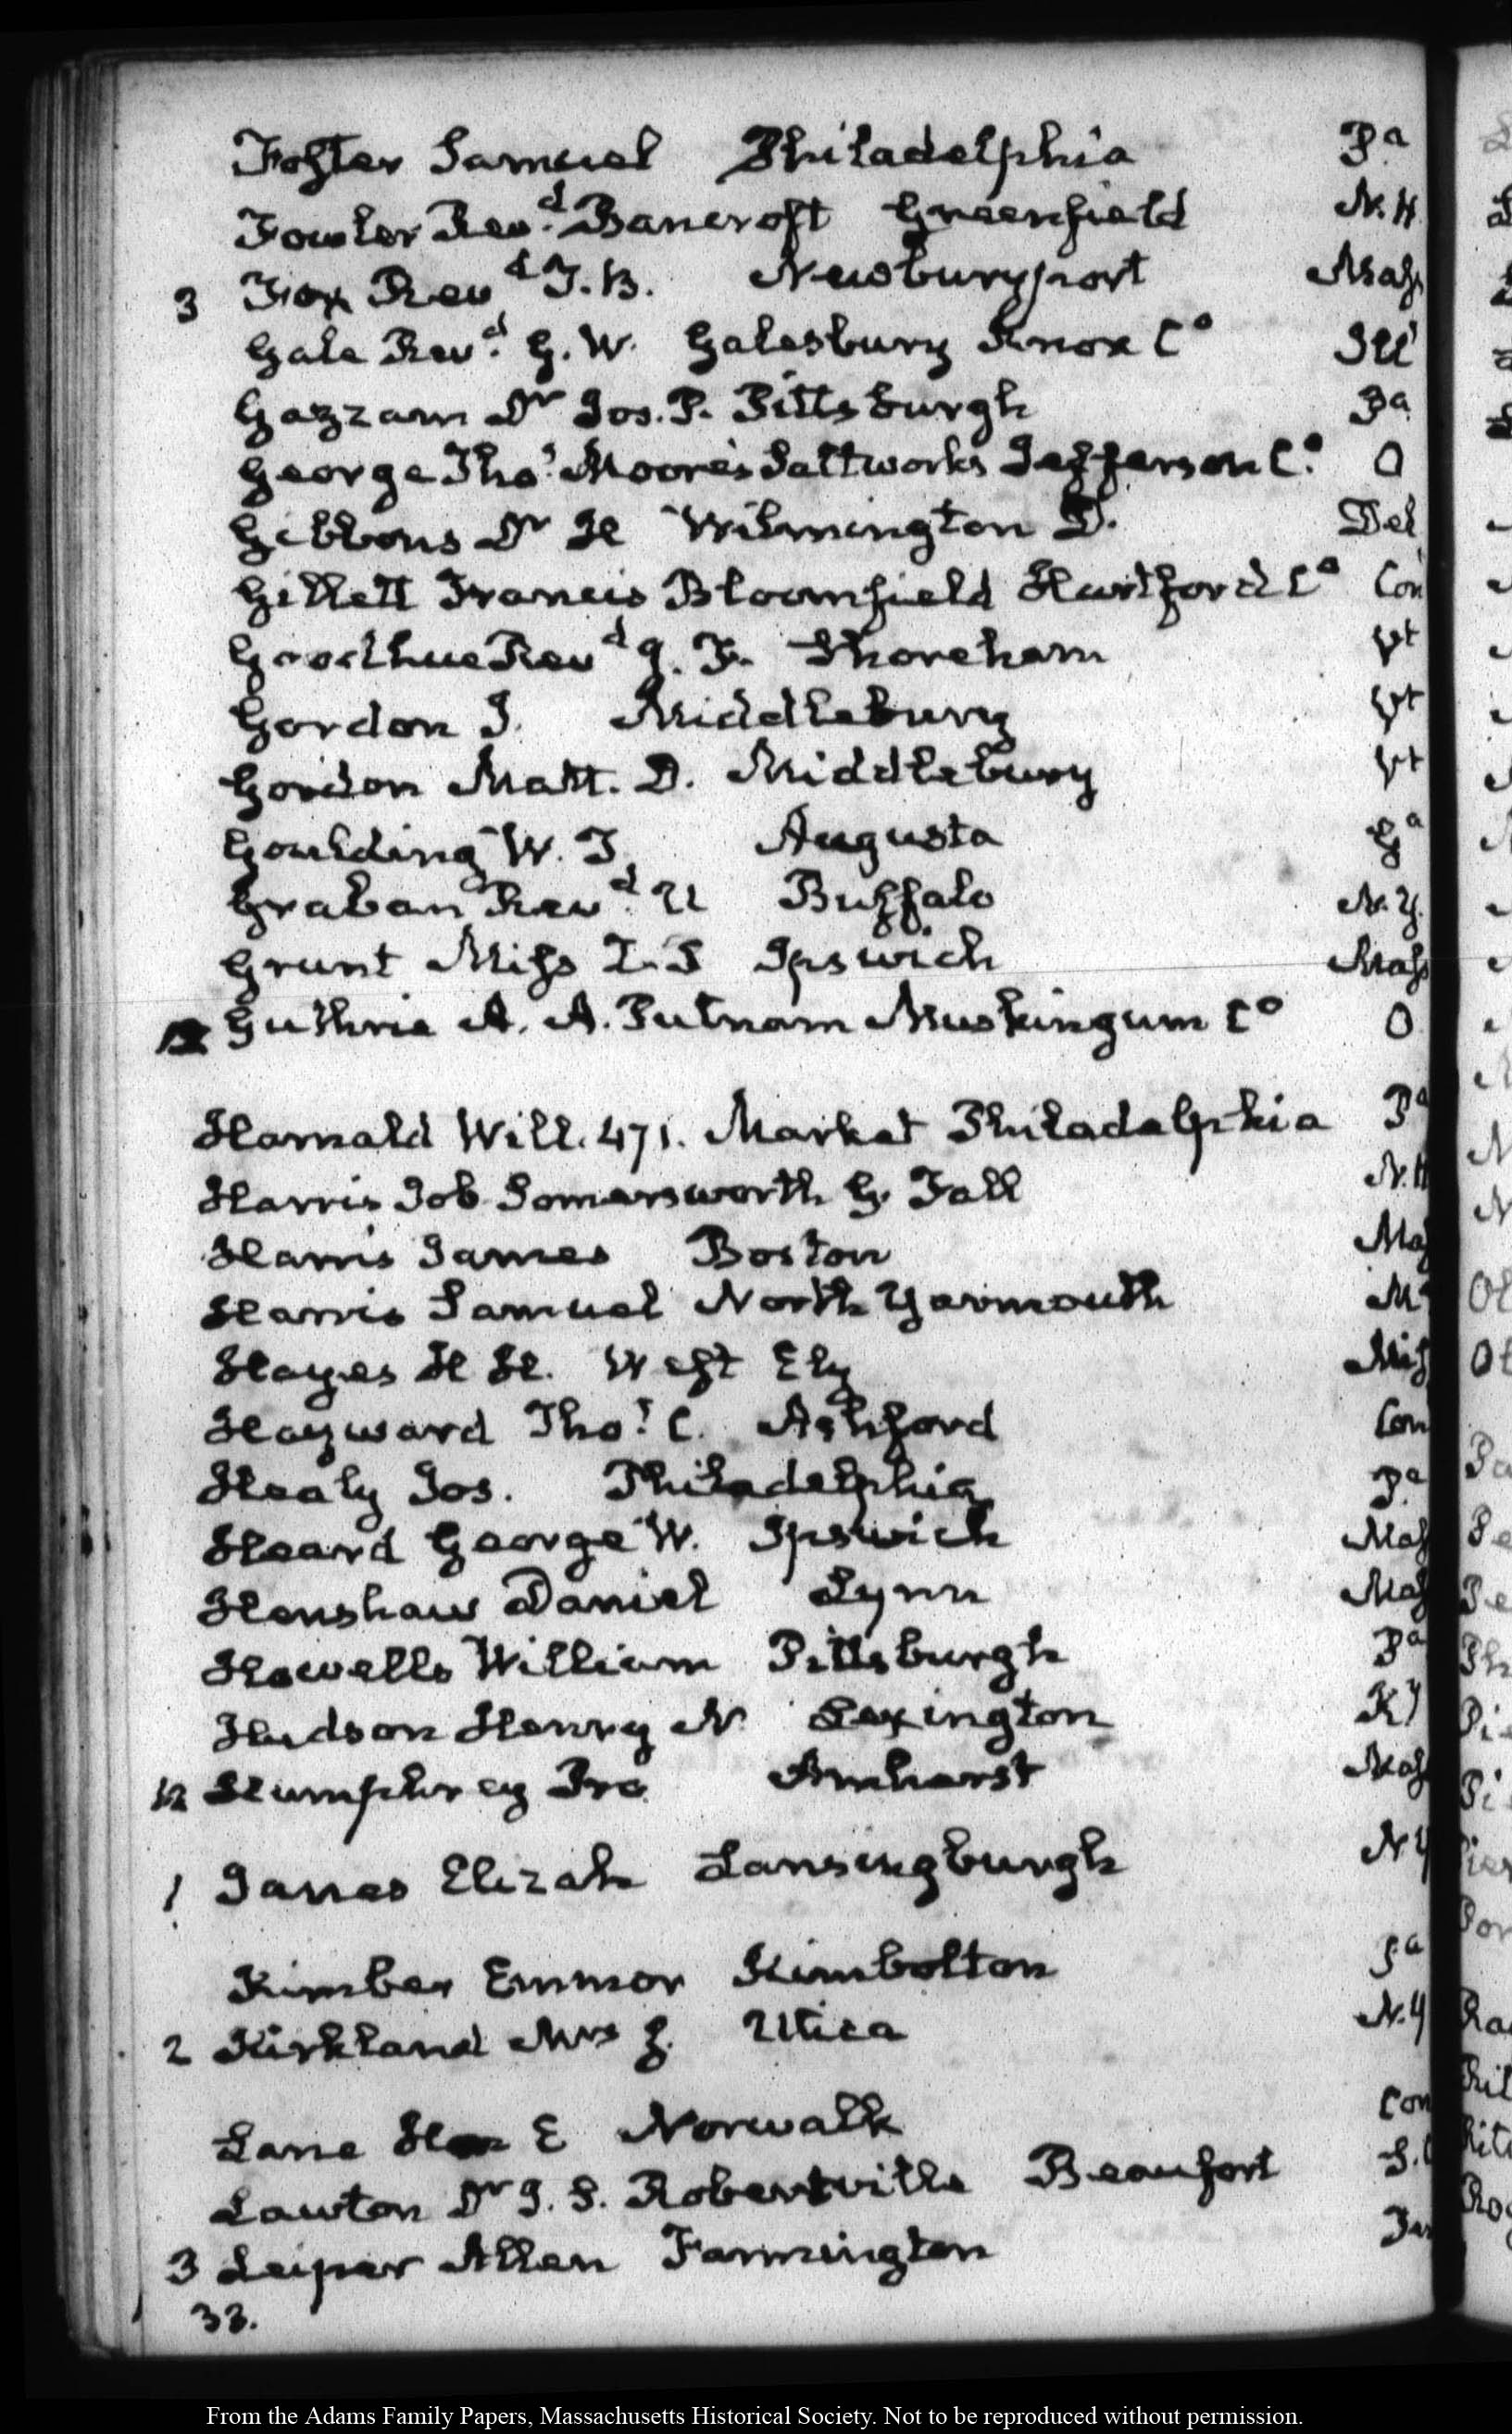 Foster Samuel Philadelphia Pa
Fowler Revd. Bancroft Greenfield N.H
3 Fox Revd T.B. Newburyport Mass
Gale Revd. G. W. Galesburg Knox Co Ill
Gazzam Dr Jos. P. Pittsburgh Pa
George Thos. Moore's Saltworks Jefferson Co. O
Gibbons Dr H Wilmington D. Del
Gillett Francis Bloomfield Hartford Co Con
Goodhue Revd J. F. Shoreham Vt
Gordon J. Middlebury Vt
Gordon Matt. D. Middlebury Vt
Goulding W. T. Augusta Ga
Graban Revd. U Buffalo N.Y.
Grant Miss Z. P Ipswich Mass
12 Guthrie A. A. Putnam Muskingum Co O
Harnald Will. 471. Market Philadelphia Pa
Harris Job Somersworth G. Fall N.H
Harris James Boston Mas
Harris Samuel North Yarmouth Me
Hayes H H. West Ely Mis
Hayward Thos. C. Ashford Con
Healy Jos. Philadelphia Pa
Heard George W. Ipswich Mas
Henshaw Daniel Lynn Mas
Howells William Pittsburgh Pa
Hudson Henry N. Lexington Ky
12 Humphrey Pre. Amherst Mas
1 Janes Elizah Lansingburgh N Y
Kimber Emmor Kimbolton Pa
2 Kirkland Mrs J. Utica N.Y
Lane E Norwalk Con
Lawton Dr J. S. Robertville Beaufort S.C
3 Leiper Allen Farmington
33.
From the Adams Family Papers, Massachusetts Historical Society. Not to be reproduced without permission.